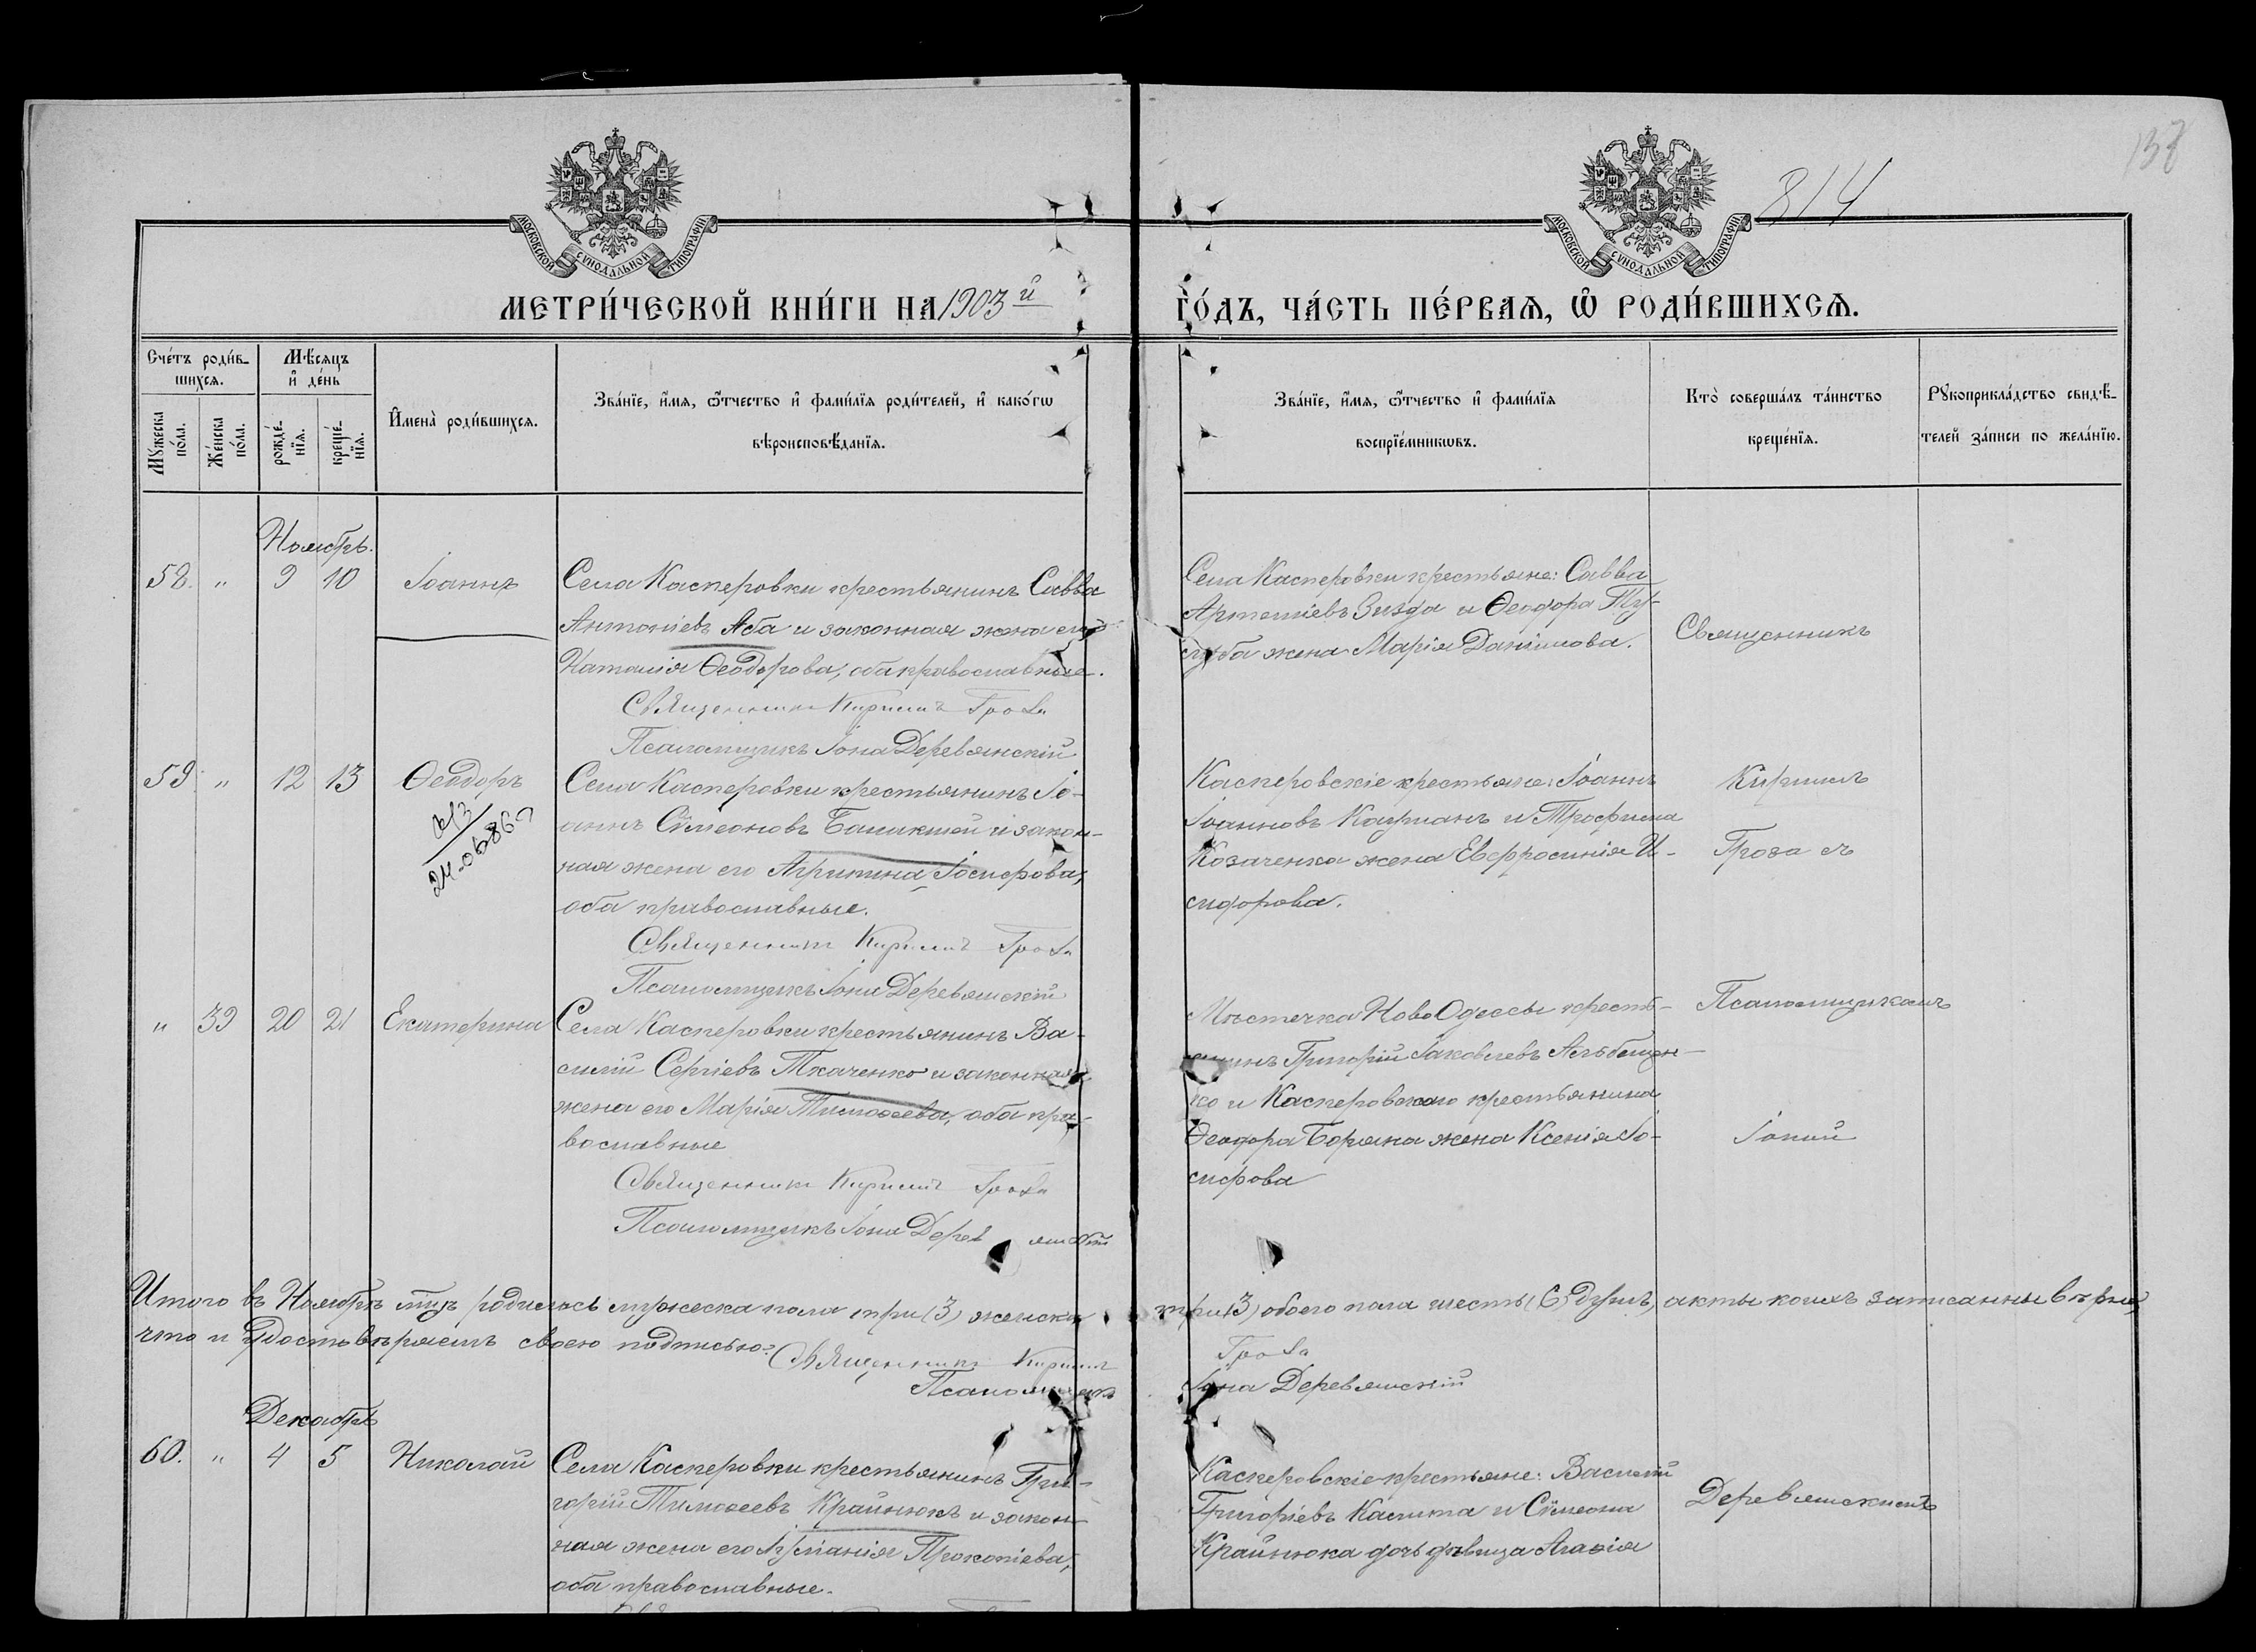 138
814
МОСКОВСКОЙ СИНОДАЛЬНОЙ ТИПОГРАФІИ
МОСКОВСКОЙ СИНОДАЛЬНОЙ ТИПОГРАФІИ
МЕТРИ́ЧЕСКОЙ КНИ́ГИ НА 1903й ГО́ДЪ, ЧА́СТЬ ПЕ́РВАѦ, Ѡ҆ РОДИ́ВШИХСѦ.
Сче́тъ роди́в-
шихсѧ.
Мѣ́сѧцъ
и҆ де́нь
Мꙋ́жеска
по́ла.
Же́нска
по́ла.
рожде́-
нїѧ.
креще́-
нїѧ.
И҆мена̀ роди́вшихсѧ.
Зва́нїе, и҆́мѧ, ѻ҆́тчество и҆ фами́лїѧ роди́телей, и҆ како́гѡ
вѣроисповѣ́данїѧ.
Зва́нїе, и҆́мѧ, ѻ҆́тчество и҆ фами́лїѧ
воспрїе́мникѡвъ.
Кто̀ соверша́лъ та́инство
креще́нїѧ.
Рꙋкоприкла́дство свидѣ́-
телей за́писи по жела́нїю.
Ноябрь.
58. " 9 10 Іоаннъ
Села Касперовки крестьянинъ Савва
Антоніевъ Аба и законная жена его
Наталія Ѳеодорова, оба православные.
Священникъ Кириллъ Гроза
Псаломщикъ Іона Деревянскій
Села Касперовки крестьяне: Савва
Артеміевъ Зизда и Ѳеодора
жена Марія Даніилова.
Священникъ
59. " 12 13 Ѳеодоръ
24-06869
Села Касперовки крестьянинъ Іо-
аннъ Сѵмеоновъ и закон-
ная жена его Агрипина Іосифова,
оба православные.
Священникъ Кириллъ Гроза
Псаломщикъ Іона Деревянскій
Касперовскіе крестьяне: Іоаннъ
Іоанновъ Кауманъ и Трофима
Козаченка жена Евфросинія И-
сидорова.
Кириллъ
Гроза съ
" 39 20 21 Екатерина
Села Касперовки крестьянинъ Ва-
силій Сергіевъ Ткаченко и законная
жена его Марія Тимоѳеева, оба пра-
вославные
Священникъ Кириллъ Гроза
Псаломщикъ Іона Деревянскій
Мѣстечка Ново Одессы кресть-
янинъ Григорій Іаковлевъ
ко и Касперовскаго крестьянина
Ѳеодора Боряна жена Ксенія Іо-
сифова
Псаломщикомъ
Іоною
Итого въ Ноябрѣ мцѣ родилось мужеска пола три (3) женска три (3) обоего пола шесть (6) душъ, акты коихъ записанны вѣрно,
что и удостовѣряемъ своею подписью: Священникъ Кириллъ Гроза
Псаломщикъ Іона Деревянскій
Декабрь
60. " 4 5 Николай
Села Касперовки крестьянинъ Гри-
горій Тимоѳеевъ Крайнюкъ и закон-
ная жена его Іуліанія Прокопіева,
оба православные.
Касперовскіе крестьяне: Василій
Григоріевъ Калита и Сѵмеона
Крайнюка дочь дѣвица Агаѳія
Деревянскимъ